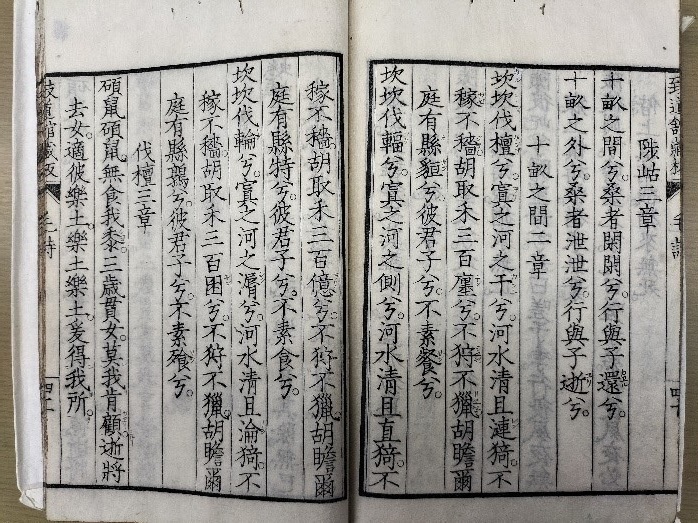 陟岵三章
十畝之間兮桑者閑閑兮行與子還兮
十畝之外兮桑者泄泄兮行與子逝兮
十畝之間二章
坎坎伐檀兮寘之河之干兮河水清且漣猗不
稼不穡胡取禾三百廛兮不狩不獵胡瞻爾
庭有縣貆兮彼君子兮不素餐兮
坎坎伐輻兮寘之河之側兮河水清且直猗不
稼不穡胡取禾三百億兮不狩不獵胡瞻爾
庭有縣特兮彼君子兮不素食兮
坎坎伐輪兮寘之河之漘兮河水清且淪猗不
稼不穡胡取禾三百囷兮不狩不獵胡瞻爾
庭有縣鶉兮彼君子兮不素飧兮
伐檀三章
碩鼠碩鼠無食我黍三歲貫女莫我肯顧逝將
去女適彼樂土樂土樂土爰得我所